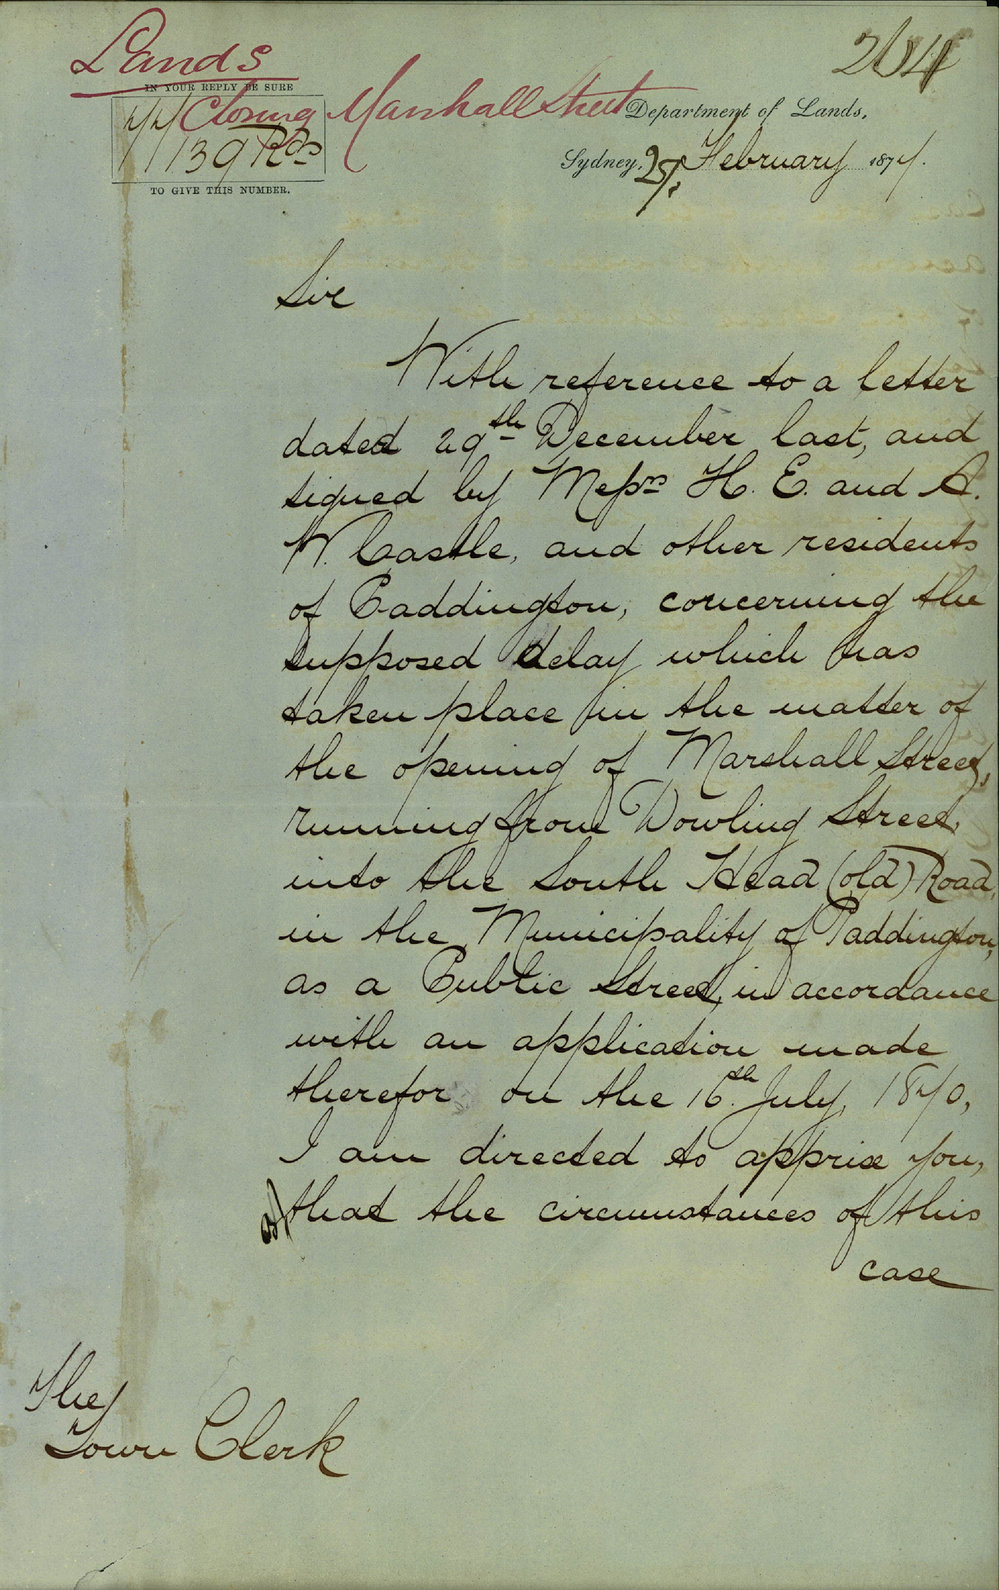 Lands
264
IN YOUR REPLY BE SURE
Closing Marshall Street
Department of Lands,
77/139 Rds
Sydney, 27 February 1877.
TO GIVE THIS NUMBER.
Sir
With reference to a letter
dated 29th December last, and
signed by Messrs H. E. and A.
W. Castle, and other residents
of Paddington, concerning the
supposed delay which has
taken place in the matter of
the opening of Marshall Street,
running from Dowling Street,
into the South Head (old) Road,
in the Municipality of Paddington,
as a Public Street, in accordance
with an application made
therefor on the 16th. July, 1870,
I am directed to apprise you,
that the circumstances of this
case
The
Town Clerk